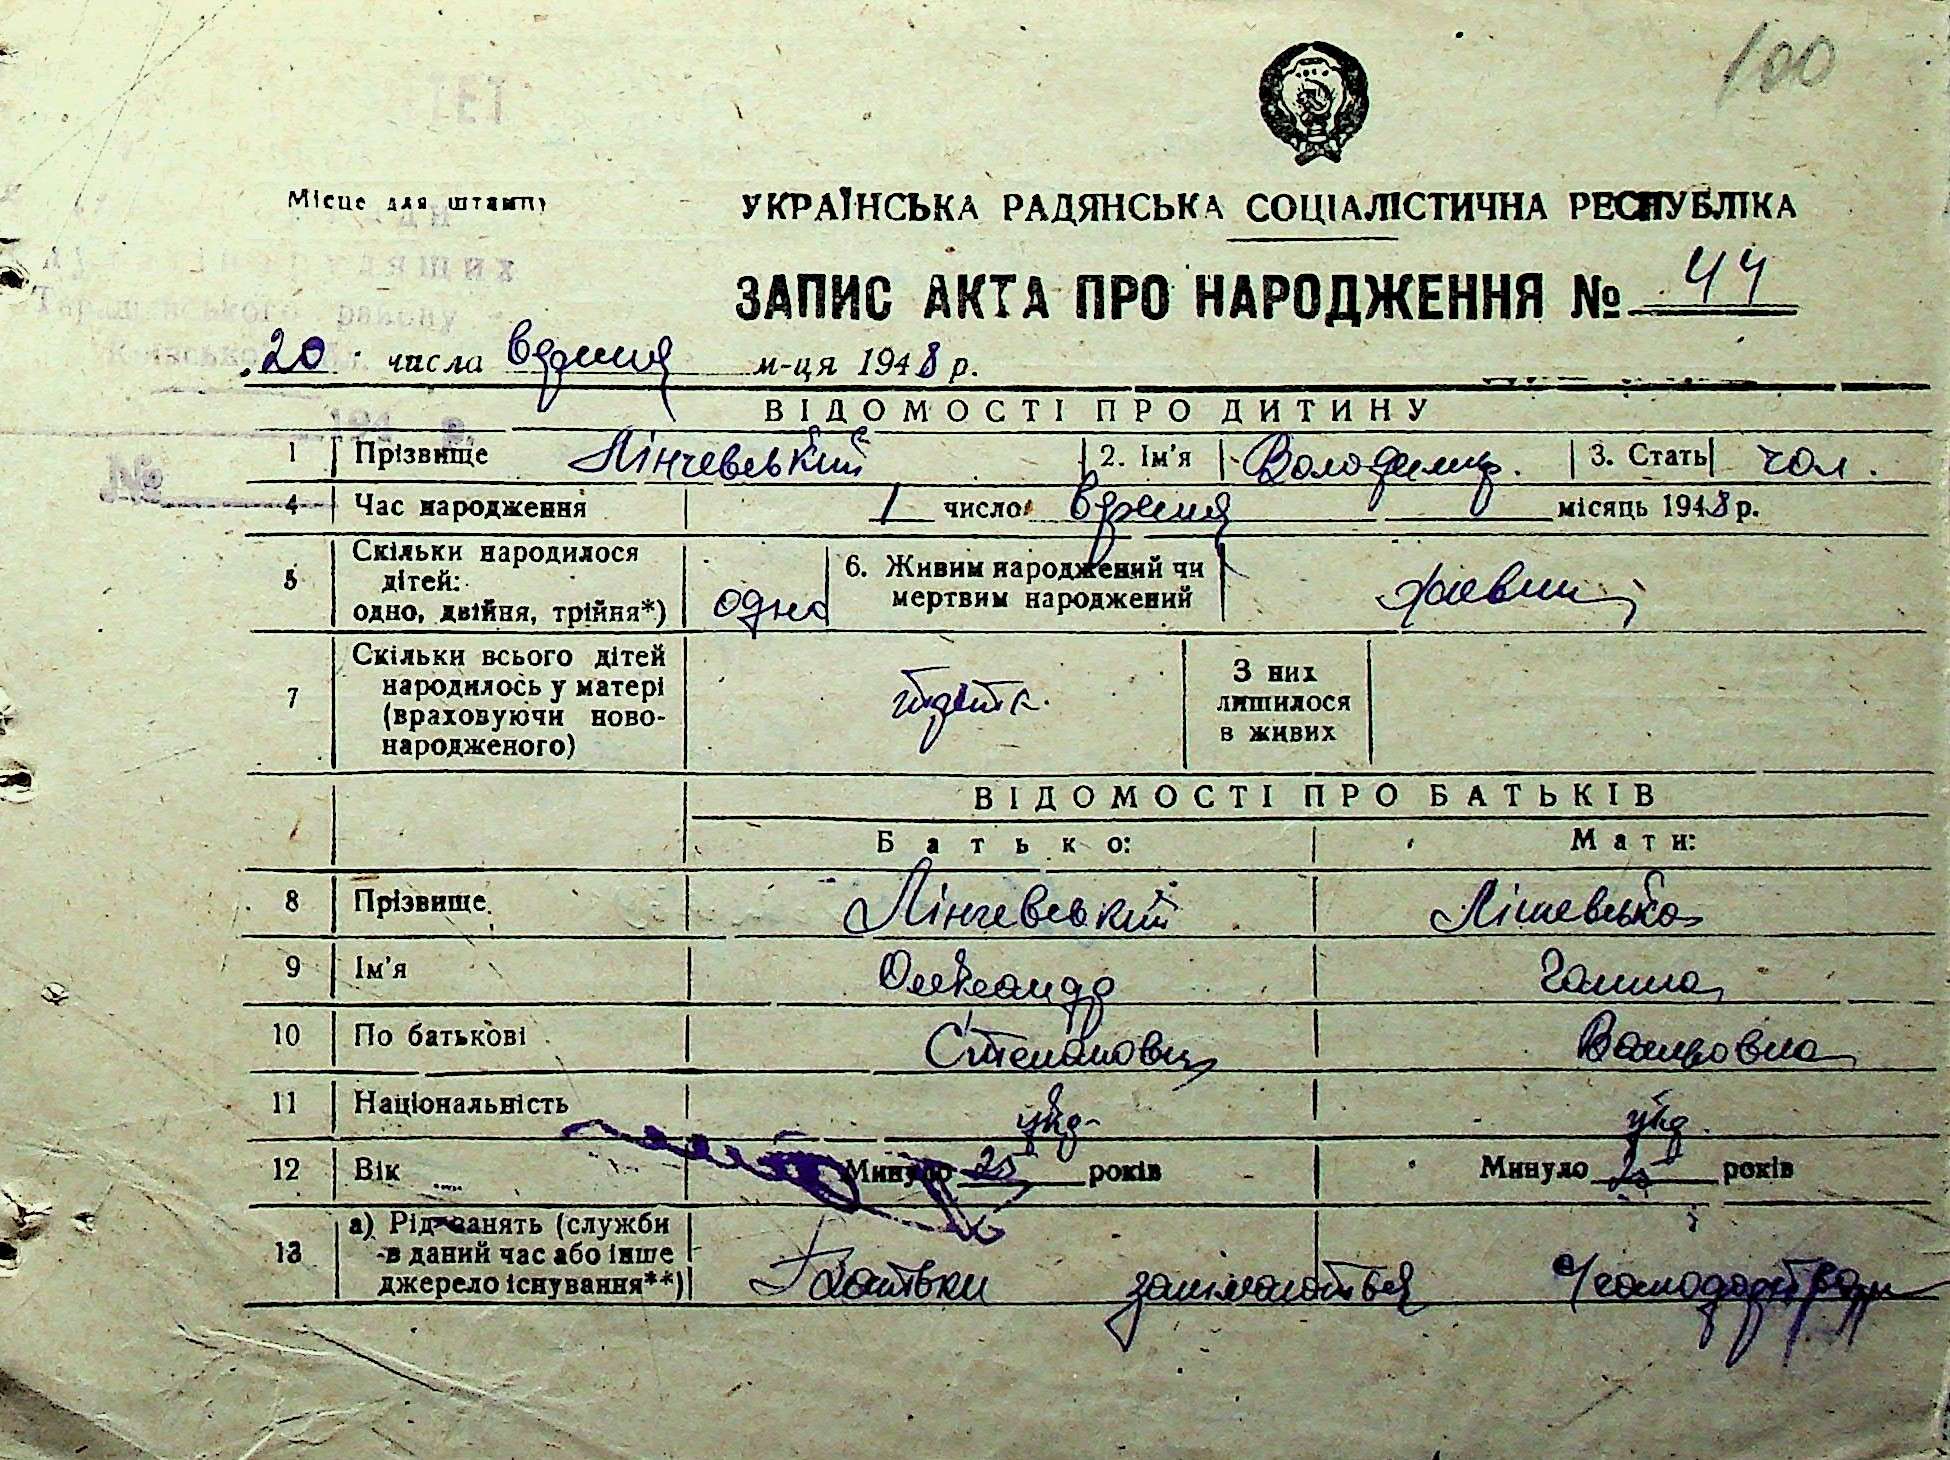 100
Місце для штампу
УКРАЇНСЬКА РАДЯНСЬКА СОЦІАЛІСТИЧНА РЕСПУБЛІКА
ЗАПИС АКТА ПРО НАРОДЖЕННЯ № 44
Таращанського району
20 числа вересня м-ця 1948 р.
ВІДОМОСТІ ПРО ДИТИНУ
1 Прізвище Лінчевський 2. Ім'я Володимир. 3. Стать чол.
№
4 Час народження 1 число вересня місяць 1948 р.
5 Скільки народилося дітей: одно, двійня, трійня*) одно 6. Живим народжений чи мертвим народжений живим
7 Скільки всього дітей народилось у матері (враховуючи новонародженого) З них лишилося в живих
ВІДОМОСТІ ПРО БАТЬКІВ
Батько: Мати:
8 Прізвище Лінчевський Лінчевська
9 Ім'я Олександр Ганна
10 По батькові Степанович
11 Національність укр. укр.
12 Вік Минуло 25 років Минуло 25 років
13 а) Рід занять (служби в даний час або інше джерело існування**) Батьки займаються